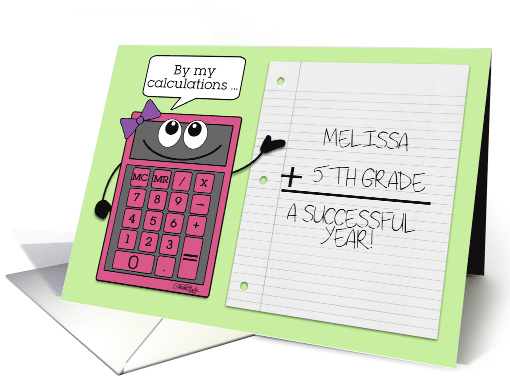 By my
calculations ...
MELISSA
+ 5TH GRADE
A SUCCESSFUL
YEAR!
MC MR / X
7 8 9 –
4 5 6 +
1 2 3 =
0 .